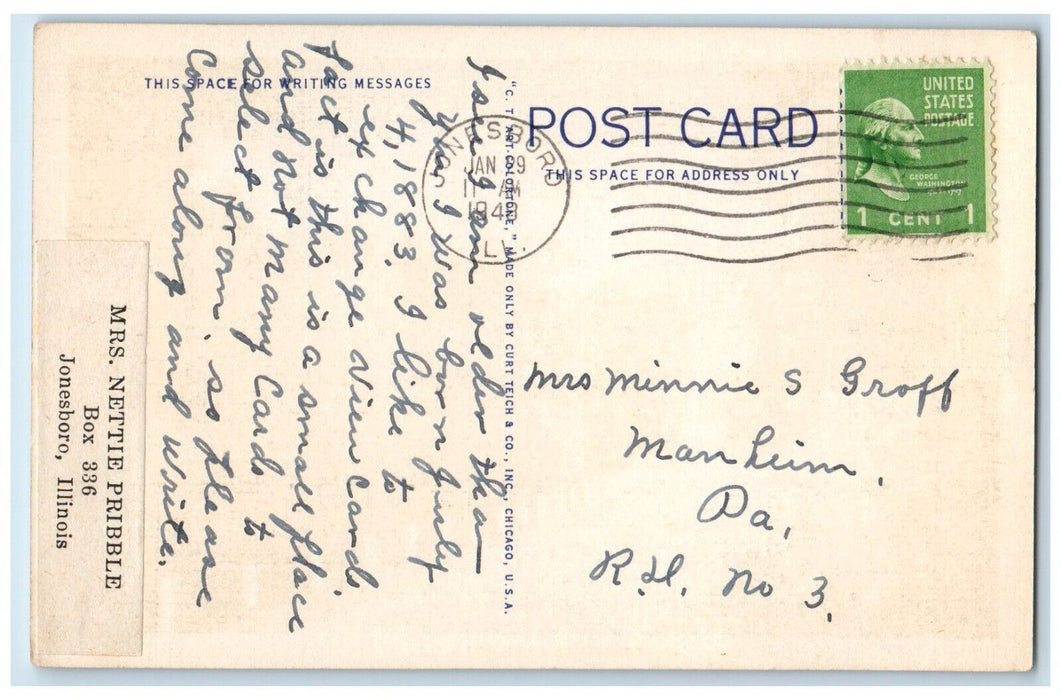 THIS SPACE FOR WRITING MESSAGES
I see I am older tha
you I was born July
4, 1883. I like to
exchange view cards.
fact is this is a small place
and not many cards to
select from, so please
come along and write.
MRS. NETTIE PRIBBLE
Box 336
Jonesboro, Illinois
"C. T. ART-COLORTONE," MADE ONLY BY CURT TEICH & CO., INC., CHICAGO, U.S.A.
POST CARD
THIS SPACE FOR ADDRESS ONLY
JONESBORO
JAN 29
11 AM
ILL.
UNITED
STATES
POSTAGE
GEORGE
WASHINGTON
1 CENT 1
Mrs Minnie S Groff
Manheim,
Pa,
R.D. No 3.